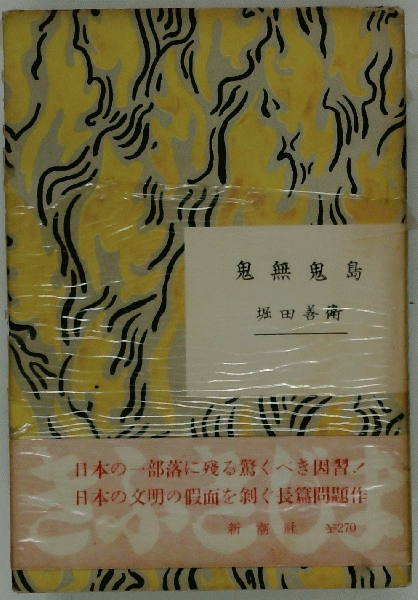 鬼無鬼島
堀田善衞
日本の一部落に殘る驚くべき因習！
日本の文明の假面を剝ぐ長篇問題作
新潮社 ¥270